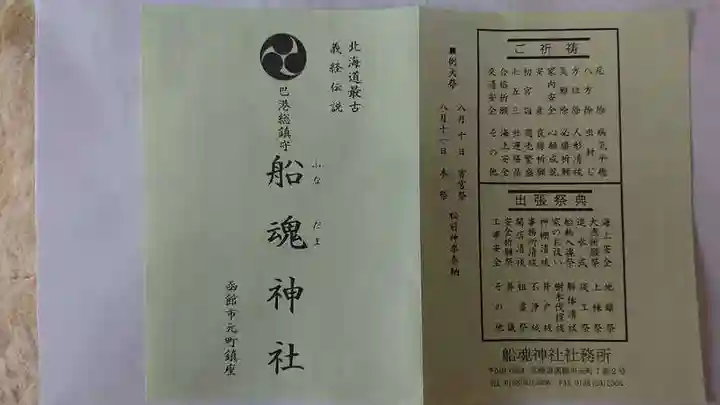 北海道最古
義経伝説
巴港総鎮守
船魂神社
ふなだま
函館市元町鎮座
■例大祭
八月十日 宵宮祭 松前神楽奉納
八月十一日 本祭
ご祈祷
厄除
八方除
方位除
災難除
家内安全
安産
初宮詣
七五三
合格祈願
交通安全
病気平癒
虫封じ
人形清祓
必勝祈願
心願成就
良縁祈願
商売繁盛
社運隆昌
海上安全
その他
出張祭典
海上安全
大漁祈願祭
進水式
船魂入魂祭
家のお祓い
神棚清祓
事務所清祓
開店清祓
安全祈願祭
工事安全
地鎮祭
上棟祭
竣工祭
解体清祓
樹木伐採祓
井戸祓
石浄祓
祖霊祭
葬儀
その他
船魂神社社務所